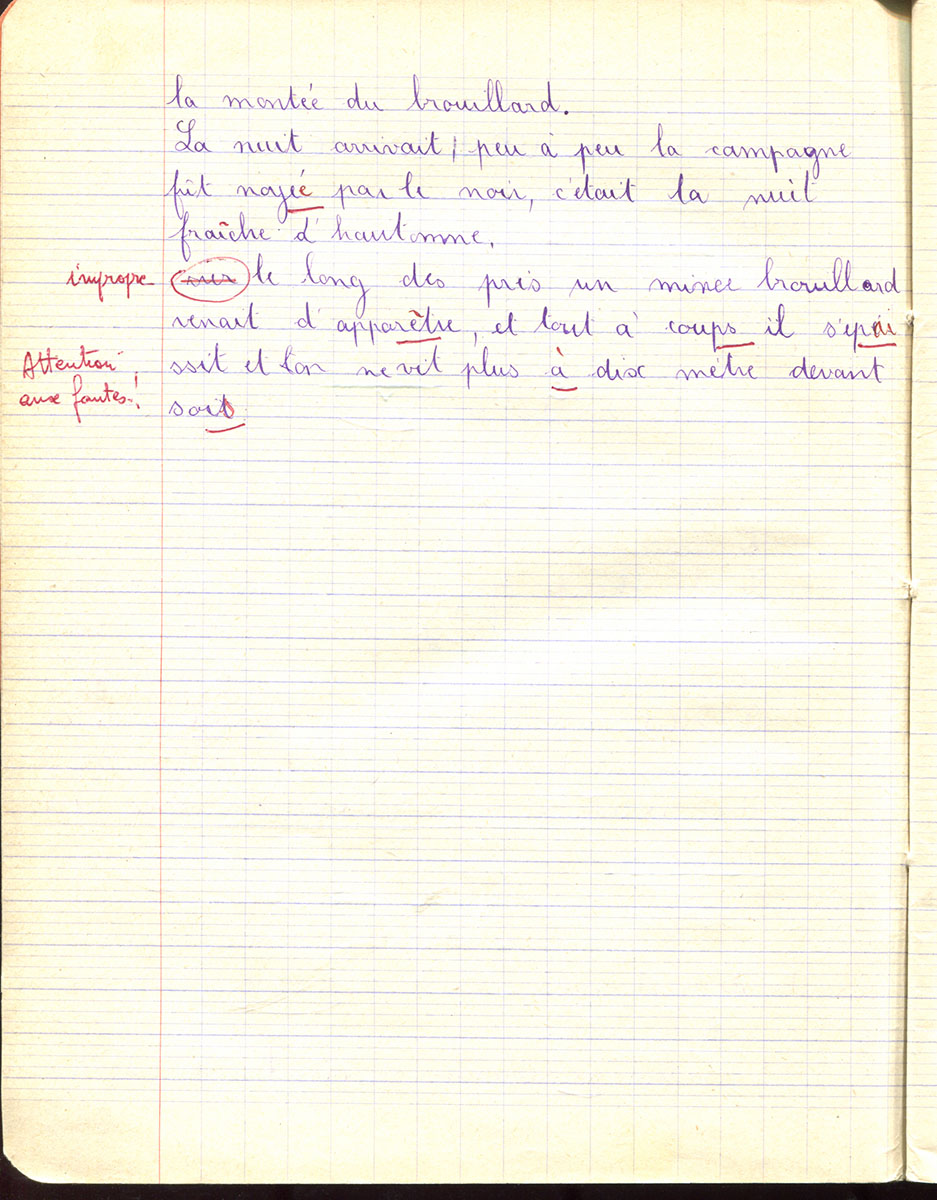 la montée du brouillard.
La nuit arrivait, peu à peu la campagne
fût noyée par le noir, c'était la nuit
fraîche d'hautomne.
impropre sur le long des près un mince brouillard
venait d'apparêtre, et tout à coups il s'epai
Attention ssit et l'on ne vit plus à dix mètre devant
aux fautes! soit